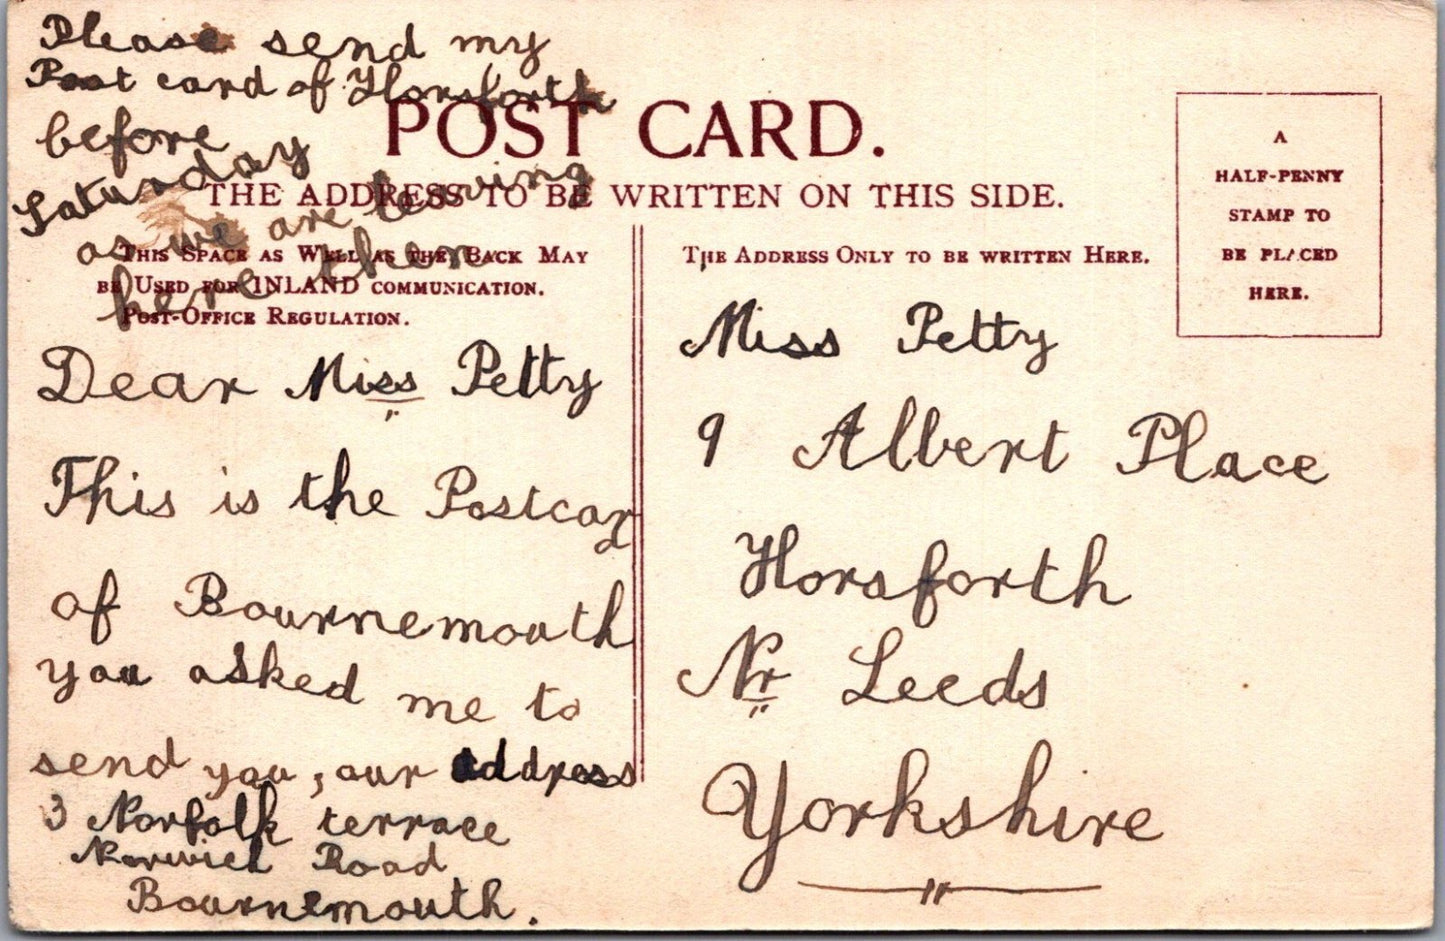 Please send my
Post card of Horsforth
before
Saturday
as we are leaving
here then
POST CARD.
THE ADDRESS TO BE WRITTEN ON THIS SIDE.
THIS SPACE AS WELL AS THE BACK MAY
BE USED FOR INLAND COMMUNICATION.
POST-OFFICE REGULATION.
Dear Miss Petty
This is the Postcard
of Bournemouth
you asked me to
send you, our address
3 Norfolk terrace
Norwich Road
Bournemouth.
THE ADDRESS ONLY TO BE WRITTEN HERE.
A
HALF-PENNY
STAMP TO
BE PLACED
HERE.
Miss Petty
9 Albert Place
Horsforth
Nr Leeds
Yorkshire